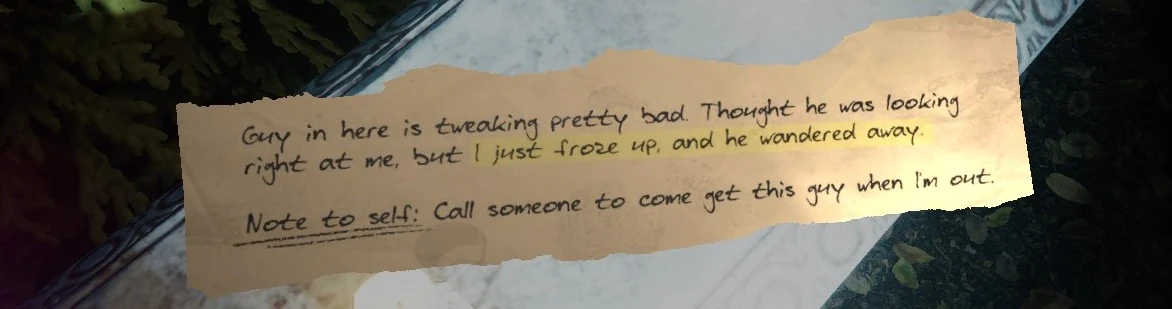 Guy in here is tweaking pretty bad. Thought he was looking
right at me, but I just froze up, and he wandered away.
Note to self: Call someone to come get this guy when I'm out.